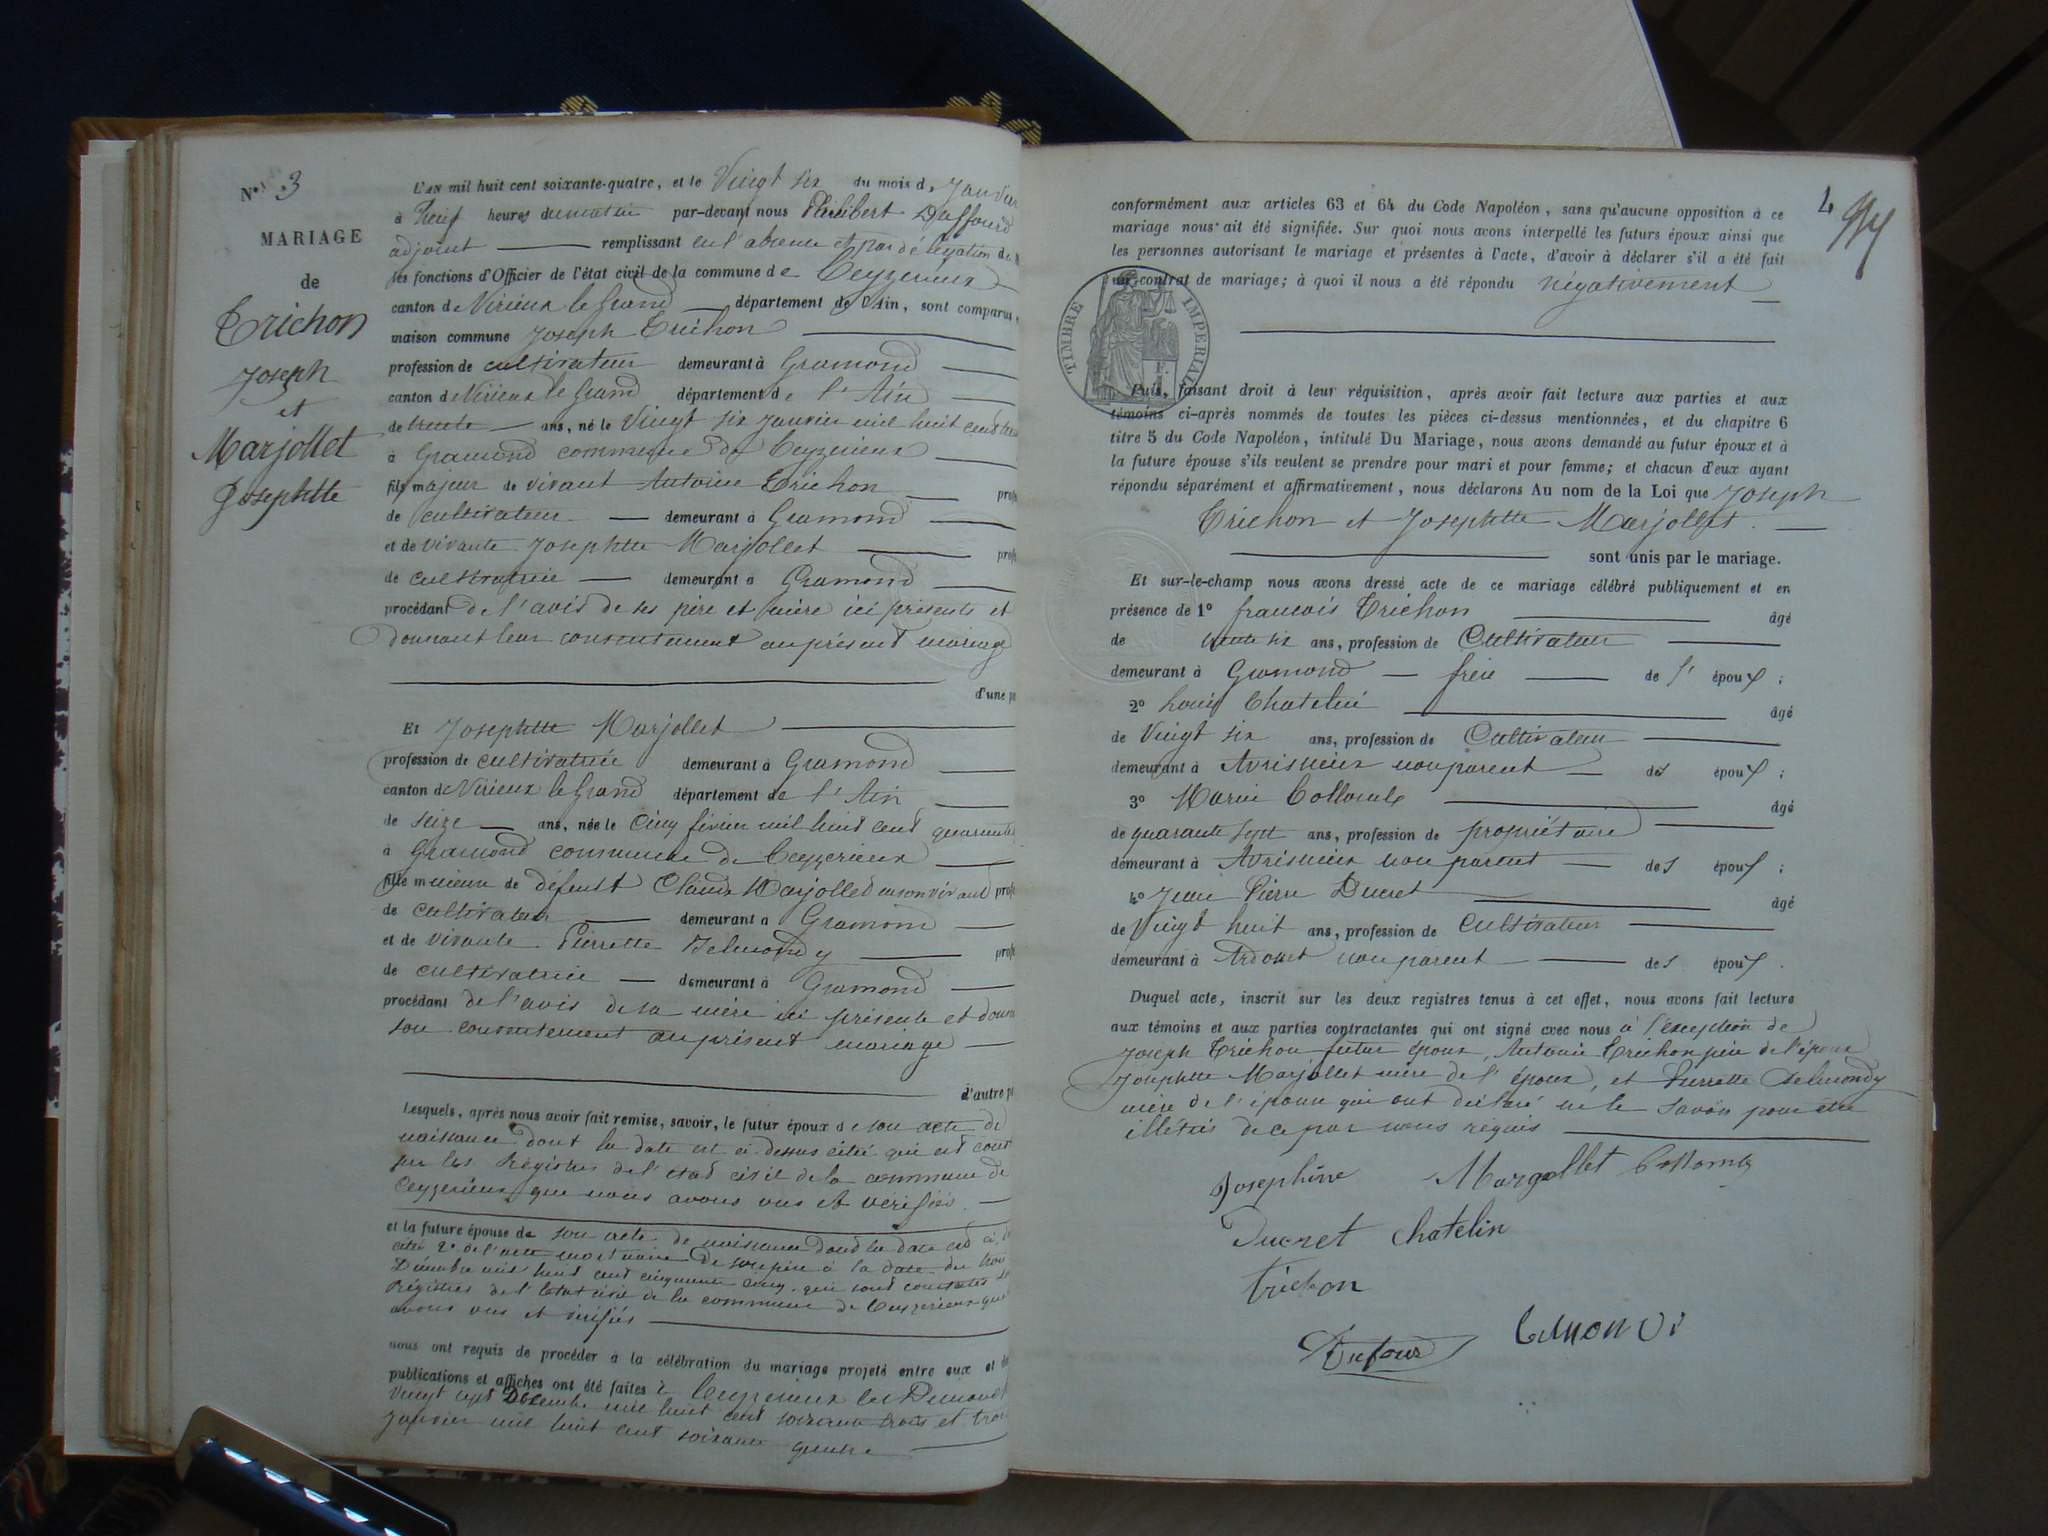 N° 3
MARIAGE
de
Trichon
Joseph
et
Marjollet
Josephtte
L'AN mil huit cent soixante-quatre, et le Vingt six du mois de Janvier
à Neuf heures du matin par-devant nous Philibert Duffourd
adjoint remplissant en l'absence et par délégation de
les fonctions d'Officier de l'état civil de la commune de Ceyzerieux
canton de Virieux le Grand département de l'Ain, sont comparus
maison commune Joseph Trichon
profession de cultivateur demeurant à Gramond
canton de Virieux le Grand département de l'Ain
de trente ans, né le Vingt six Janvier mil huit cent
à Gramond commune de Ceyzerieux
fils majeur de vivant Antoine Trichon
de cultivateur demeurant à Gramond
et de vivante Josephtte Marjollet
de cultivatrice demeurant à Gramond
procédant de l'avis de ses père et mère ici présents et
donnant leur consentement au présent mariage
d'une
Et Josephtte Marjollet
profession de cultivatrice demeurant à Gramond
canton de Virieux le Grand département de l'Ain
de seize ans, née le Cinq février mil huit cent quarante
à Gramond commune de Ceyzerieux
fille mineure de défunt Claude Marjollet en son vivant
de cultivateur demeurant à Gramond
et de vivante Pierrette Delmondy
de cultivatrice demeurant à Gramond
procédant de l'avis de sa mère ici présente et
son consentement au présent mariage
d'autre
Lesquels, après nous avoir fait remise, savoir, le futur époux de son acte de
naissance dont la date est ci-dessus citée qui est
sur les Régistres de l'état civil de la commune de
Ceyzerieux que nous avons vus et vérifiés
et la future épouse de son acte de naissance dont la date est
citée 2° de l'acte mortuaire de son père à la date du
Décembre mil huit cent cinquante cinq, qui sont constatés
Régistres de l'état civil de la commune de Ceyzerieux que
avons vus et vérifiés
nous ont requis de procéder à la célébration du mariage projeté entre eux et
publications et affiches ont été faites à Ceyzerieux les Dimanches
Vingt sept Décembre mil huit cent soixante trois et trois
Janvier mil huit cent soixante quatre
4
conformément aux articles 63 et 64 du Code Napoléon, sans qu'aucune opposition à ce
mariage nous ait été signifiée. Sur quoi nous avons interpellé les futurs époux ainsi que
les personnes autorisant le mariage et présentes à l'acte, d'avoir à déclarer s'il a été fait
un contrat de mariage; à quoi il nous a été répondu négativement
TIMBRE IMPÉRIAL
Puis, faisant droit à leur réquisition, après avoir fait lecture aux parties et aux
témoins ci-après nommés de toutes les pièces ci-dessus mentionnées, et du chapitre 6
titre 5 du Code Napoléon, intitulé Du Mariage, nous avons demandé au futur époux et à
la future épouse s'ils veulent se prendre pour mari et pour femme; et chacun d'eux ayant
répondu séparément et affirmativement, nous déclarons Au nom de la Loi que Joseph
Trichon et Josephtte Marjollet
sont unis par le mariage.
Et sur-le-champ nous avons dressé acte de ce mariage célébré publiquement et en
présence de 1° francois Trichon âgé
de trente six ans, profession de Cultivateur
demeurant à Gramond frère de l' époux ;
2° Louis Chatelin âgé
de Vingt six ans, profession de Cultivateur
demeurant à Avrissieux non parent des époux ;
3° Marin Collomb âgé
de quarante sept ans, profession de propriétaire
demeurant à Avrissieux non parent des époux ;
4° Jean Pierre Ducret âgé
de Vingt huit ans, profession de Cultivateur
demeurant à Ardosset non parent des époux .
Duquel acte, inscrit sur les deux registres tenus à cet effet, nous avons fait lecture
aux témoins et aux parties contractantes qui ont signé avec nous à l'exception de
Joseph Trichon futur époux, Antoine Trichon père de l'époux
Josephtte Marjollet mère de l'époux, et Pierrette Delmondy
mère de l'épouse qui ont déclaré ne le savoir pour être
illétrés de ce par nous requis
Josephine Margollet Collomb
Ducret Chatelin
trichon
Dufour